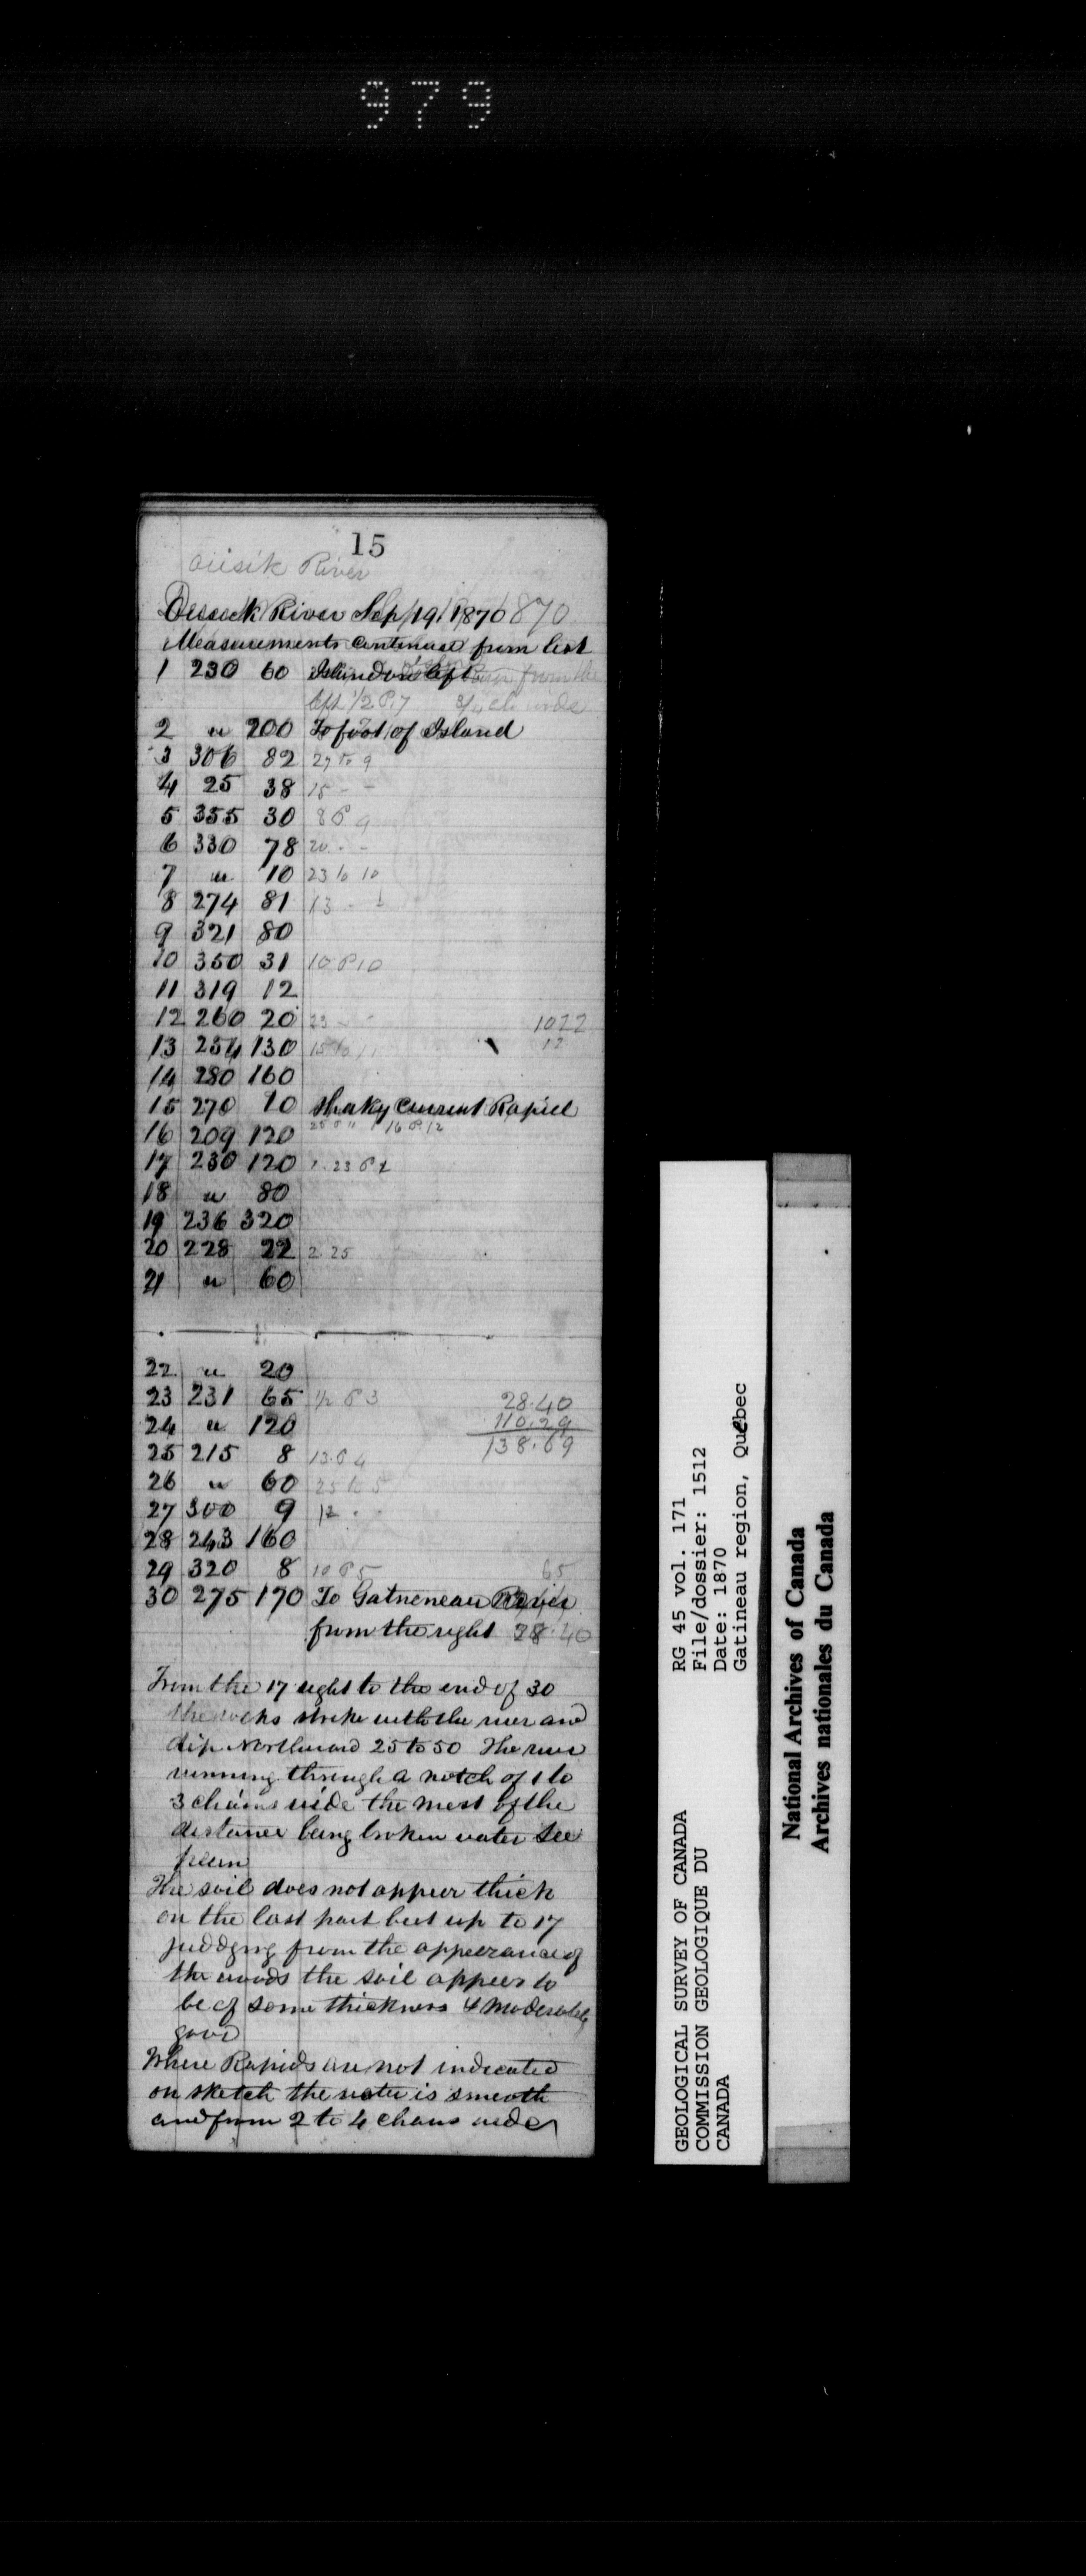 979
15
River
River Sep 19. 1870 870
Measurements Continued from last
1 230 60 Island on left from the
left 1/2 P. 7 3/4 ch wide
2 " 200 To foot of Island
3 306 82 27 to 9
4 25 38 15 - -
5 355 30 8 P 9
6 330 78 20 - -
7 " 10 23 to 10
8 274 81 13 - -
9 321 80
10 350 31 10 P 10
11 319 12
12 260 20 23 - - 1022
13 254 130 15 to 12
14 280 160
15 270 10 shaky Current Rapid
16 209 120 16 P 12
17 230 120 23 P
18 " 80
19 236 320
20 228 22 2. 25
21 " 60
22 " 20
23 231 65 1/2 P 3 28.40
24 " 120 110.29
25 215 8 13 P 4 138.69
26 " 60 25 to 5
27 300 9 12 -
28 243 160
29 320 8 10 P 5 65
30 275 170 To Gatneneau River
from the right 28.40
From the 17 sight to the end of 30
the rocks strike with the river and
dip Northward 25 to 50 The river
running through a notch of 1 to
3 chains wide the most of the
distance being broken water See
plan
The soil does not appear thick
on the last part but up to 17
judging from the appearance of
the woods the soil appears to
be of some thickness & moderately
good
Where Rapids are not indicated
on sketch the water is smooth
and from 2 to 4 chains wide
GEOLOGICAL SURVEY OF CANADA
COMMISSION GEOLOGIQUE DU
CANADA
RG 45 vol. 171
File/dossier: 1512
Date: 1870
Gatineau region, Québec
National Archives of Canada
Archives nationales du Canada